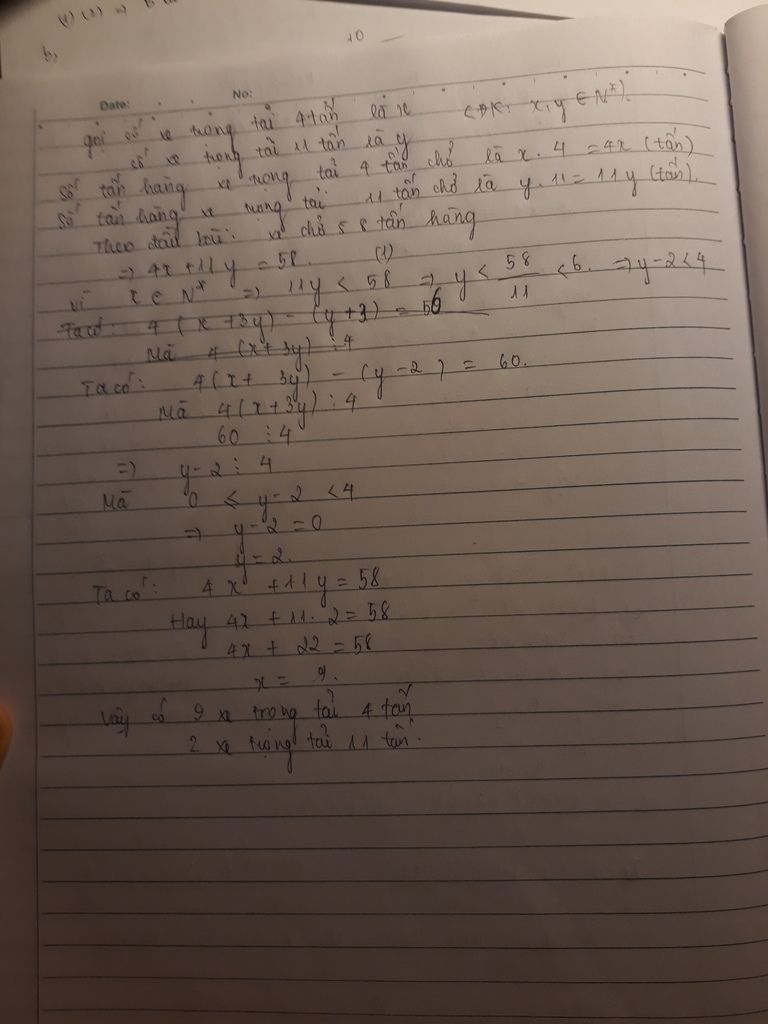 (1) (2) ⇒
b,
10
Date: No:
gọi số xe trọng tải 4 tấn là x (ĐK: x, y ∈ N*).
số xe trọng tải 11 tấn là y
Số tấn hàng xe trọng tải 4 tấn chở là x. 4 = 4x (tấn)
Số tấn hàng xe trọng tải 11 tấn chở là y. 11 = 11y (tấn).
Theo đầu bài: xe chở 58 tấn hàng
⇒ 4x + 11y = 58. (1)
Vì x ∈ N* ⇒ 11y < 58 ⇒ y < 58/11 < 6. ⇒ y - 2 < 4
Ta có: 4(x + 3y) - (y + 3) = 56
Mà 4(x + 3y) ⋮ 4
Ta có: 4(x + 3y) - (y - 2) = 60.
Mà 4(x + 3y) ⋮ 4
60 ⋮ 4
⇒ y - 2 ⋮ 4
Mà 0 ≤ y - 2 < 4
⇒ y - 2 = 0
y = 2.
Ta có: 4x + 11y = 58
Hay 4x + 11. 2 = 58
4x + 22 = 58
x = 9.
Vậy có 9 xe trọng tải 4 tấn
2 xe trọng tải 11 tấn.